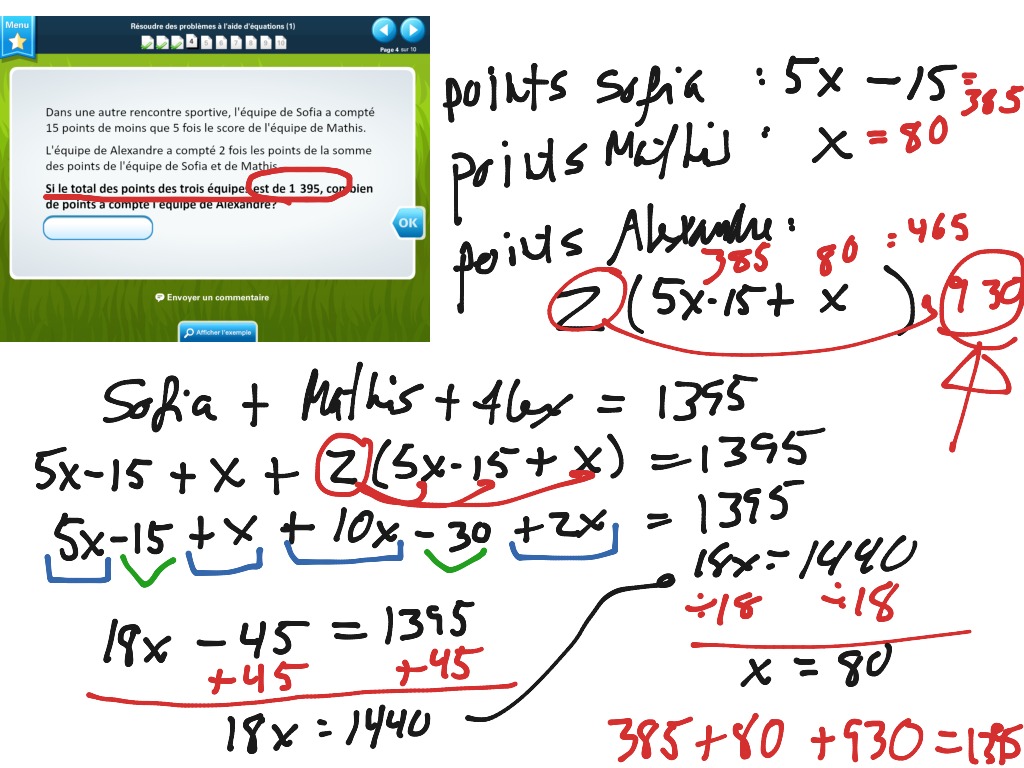 Menu
Résoudre des problèmes à l'aide d'équations (1)
4 5 6 7 8 9 10
Page 4 sur 10
Dans une autre rencontre sportive, l'équipe de Sofia a compté
15 points de moins que 5 fois le score de l'équipe de Mathis.
L'équipe de Alexandre a compté 2 fois les points de la somme
des points de l'équipe de Sofia et de Mathis.
Si le total des points des trois équipes est de 1 395, combien
de points a compté l'équipe de Alexandre?
OK
Envoyer un commentaire
Afficher l'exemple
points Sofia : 5x - 15 = 385
points Mathis : x = 80
points Alexandre :
385 80 = 465
2 (5x - 15 + x) = 930
Sofia + Mathis + Alex = 1395
5x - 15 + x + 2 (5x - 15 + x) = 1395
5x - 15 + x + 10x - 30 + 2x = 1395
18x - 45 = 1395
+45 +45
18x = 1440
18x = 1440
÷18 ÷18
x = 80
385 + 80 + 930 = 1395